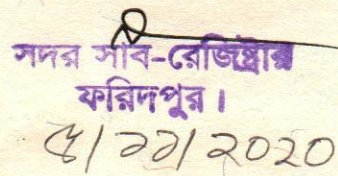 সদর সাব-রেজিষ্ট্রার
ফরিদপুর।
৫/১১/২০২০